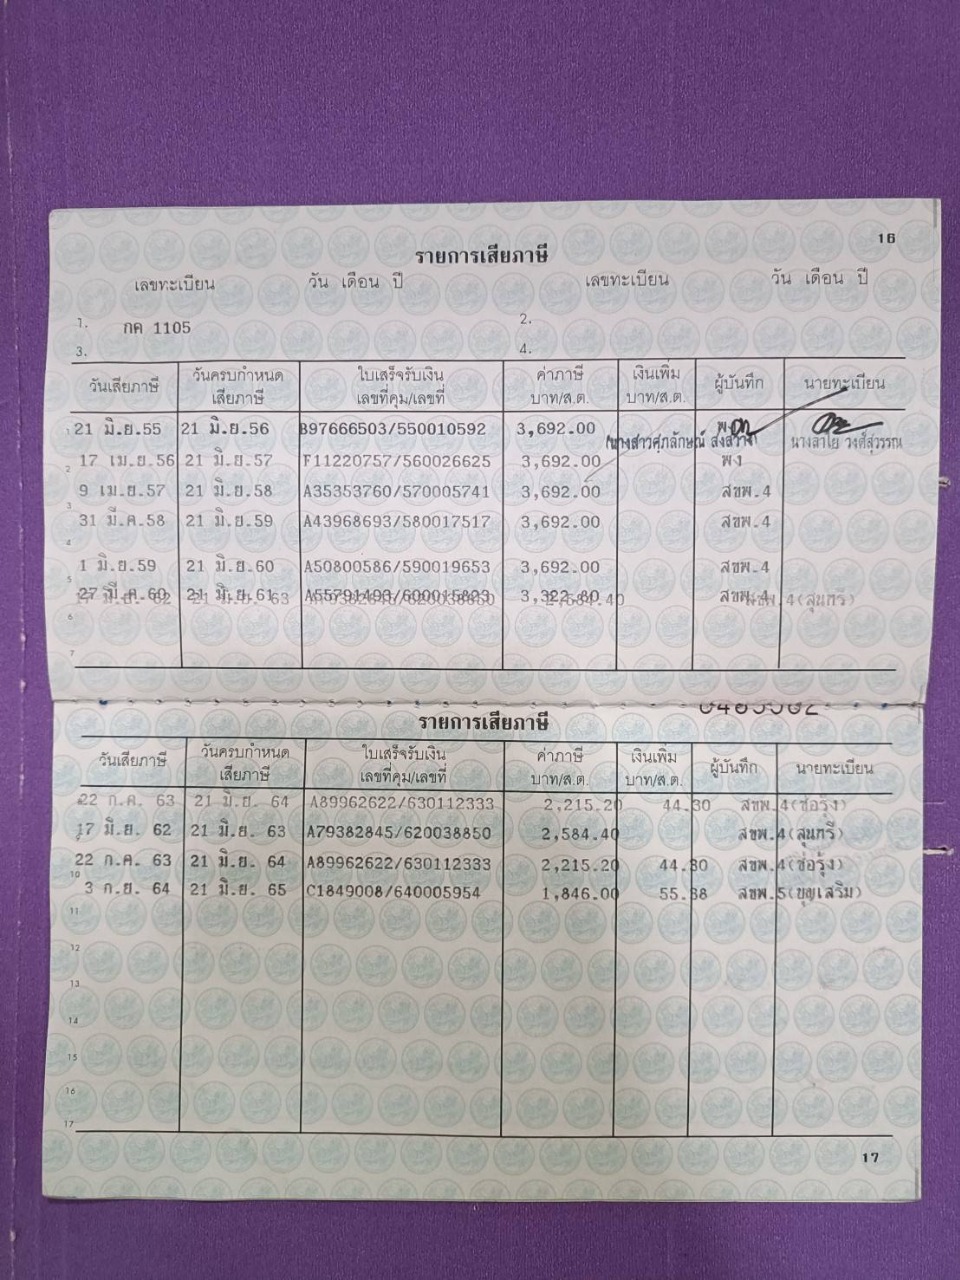 16
รายการเสียภาษี
เลขทะเบียน วัน เดือน ปี เลขทะเบียน วัน เดือน ปี
1. กค 1105 2.
3. 4.
วันเสียภาษี วันครบกำหนดเสียภาษี ใบเสร็จรับเงิน เลขที่คุม/เลขที่ ค่าภาษี บาท/ส.ต. เงินเพิ่ม บาท/ส.ต. ผู้บันทึก นายทะเบียน
1 21 มิ.ย.55 21 มิ.ย.56 B97666503/550010592 3,692.00 พง
2 17 เม.ย.56 21 มิ.ย.57 F11220757/560026625 3,692.00 พง
3 9 เม.ย.57 21 มิ.ย.58 A35353760/570005741 3,692.00 สขพ.4
4 31 มี.ค.58 21 มิ.ย.59 A43968693/580017517 3,692.00 สขพ.4
5 1 มิ.ย.59 21 มิ.ย.60 A50800586/590019653 3,692.00 สขพ.4
6 27 มี.ค.60 21 มิ.ย.61 3,322.80 สขพ.4
7
รายการเสียภาษี
วันเสียภาษี วันครบกำหนดเสียภาษี ใบเสร็จรับเงิน เลขที่คุม/เลขที่ ค่าภาษี บาท/ส.ต. เงินเพิ่ม บาท/ส.ต. ผู้บันทึก นายทะเบียน
22 ก.ค. 63 21 มิ.ย. 64 A89962622/630112333 2,215.20 44.30 สขพ.4(ช่อรุ้ง)
9 17 มิ.ย. 62 21 มิ.ย. 63 A79382845/620038850 2,584.40 สขพ.4(สุนทรี)
10 22 ก.ค. 63 21 มิ.ย. 64 A89962622/630112333 2,215.20 44.30 สขพ.4(ช่อรุ้ง)
3 ก.ย. 64 21 มิ.ย. 65 C1849008/640005954 1,846.00 55.38 สขพ.5(บุญเสริม)
11
12
13
14
15
16
17
17